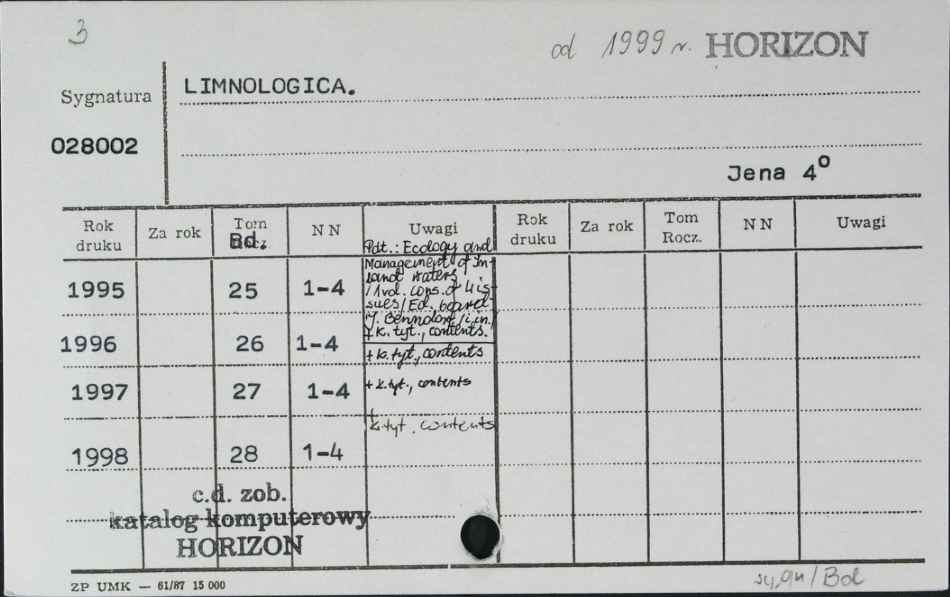 3
od 1999 r. HORIZON
LIMNOLOGICA.
Sygnatura
028002
Jena 4⁰
Rok druku Za rok Tom Rocz. Bd. N N Uwagi Rok druku Za rok Tom Rocz. N N Uwagi
Pdt.: Ecology and
Management of In-
land Waters
/1 vol. cons. of 4 is-
sues/ Ed. board
J. Benndorf /i in./
+ k. tyt., contents.
1995 25 1-4
1996 26 1-4 + k. tyt., contents
1997 27 1-4 + k. tyt., contents
+
k. tyt. contents
1998 28 1-4
c.d. zob.
katalog komputerowy
HORIZON
ZP UMK — 61/87 15 000
/Bd